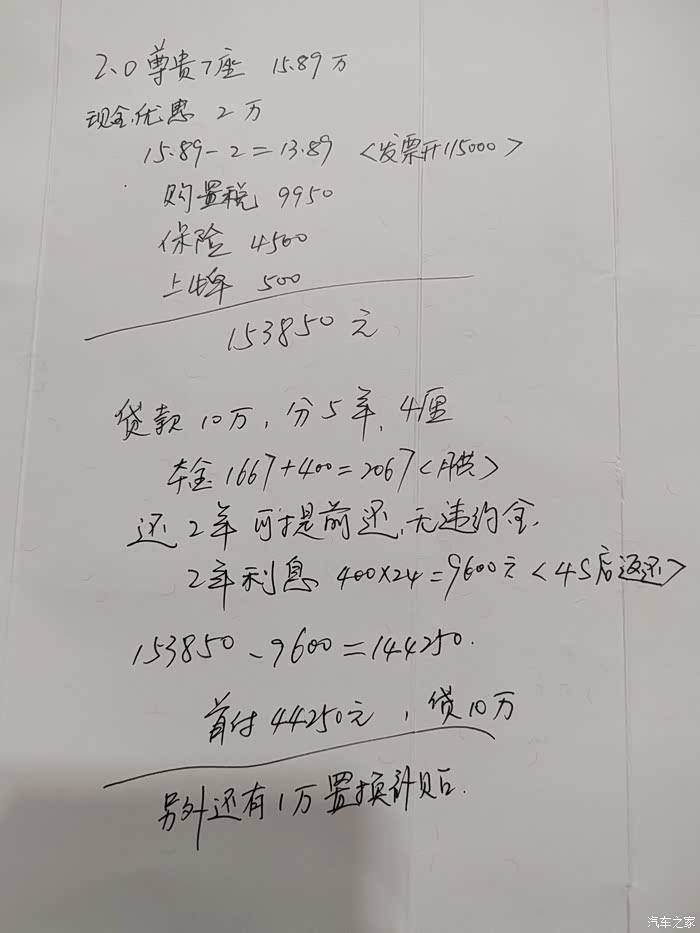 2.0尊贵7座 15.89万
现金优惠 2万
15.89-2=13.89 <发票开115000>
购置税 9950
保险 4500
上牌 500
153850元
贷款10万，分5年，4厘
本金1667+400=2067<月供>
还2年可提前还，无违约金.
2年利息 400×24=9600元<4S店返还>
153850-9600=144250.
首付44250元，贷10万
另外还有1万置换补贴.
汽车之家